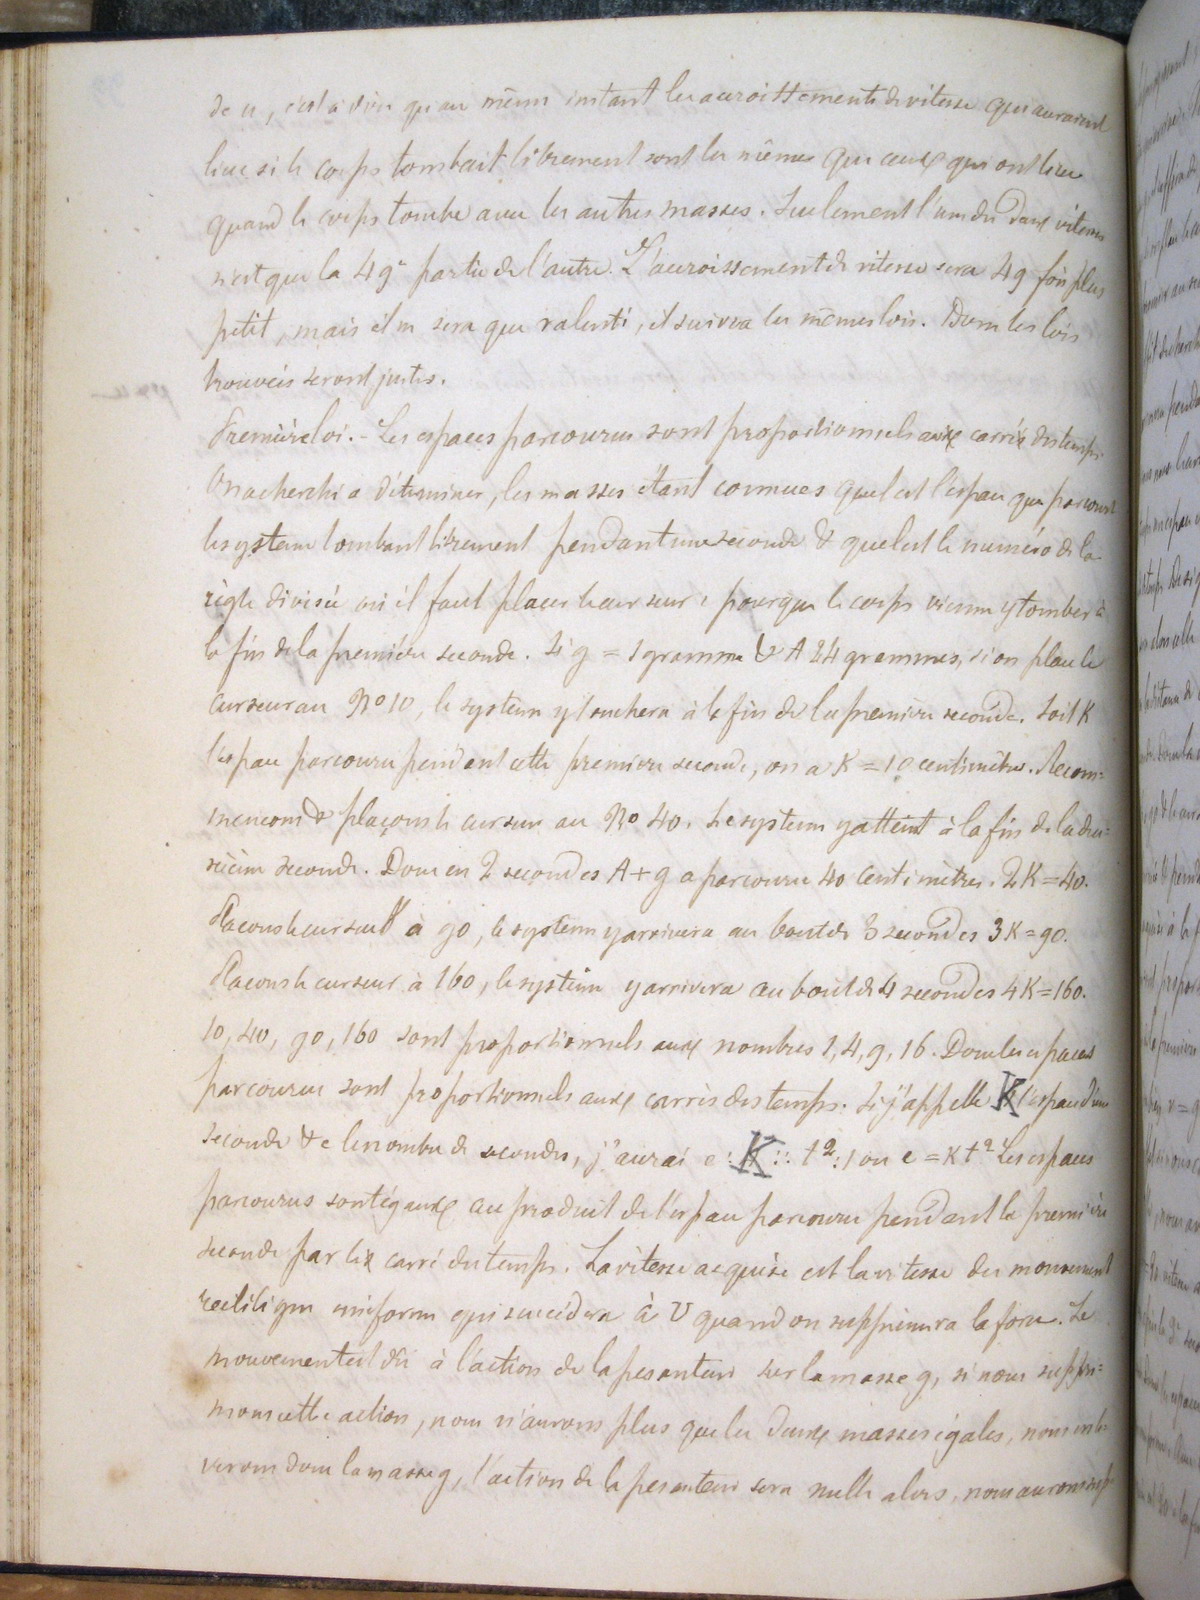 de u, c'est à dire qu'au même instant les accroissements de vitesse qui auraient
lieu si le corps tombait librement sont les mêmes que ceux qui ont lieu
quand le corps tombe avec les autres masses. Seulement l'une des deux vitesses
n'est que la 49e partie de l'autre. L'accroissement de vitesse sera 49 fois plus
petit, mais il ne sera que ralenti, il suivra les mêmes lois. Donc les lois
trouvées seront justes.
Première loi. - Les espaces parcourus sont proportionnels aux carrés des temps.
On a cherché a déterminer, les masses étant connues quel est l'espace que parcourt
le système tombant librement pendant une seconde & quel est le numéro de la
règle divisée où il faut placer le curseur, pour que le corps vienne y tomber à
la fin de la première seconde. Si g = 1 gramme & A 24 grammes, si on place le
curseur au No 10, le système y touchera à la fin de la première seconde. Soit K
l'espace parcouru pendant cette première seconde, on a K = 10 centimètres. Recom=
mençons & plaçons le curseur au No 40. Le système y atteint à la fin de la deu=
xième seconde. Donc en 2 secondes A + g a parcouru 40 centimètres. 2K = 40.
Plaçons le curseur à 90, le système y arrivera au bout de 3 secondes 3K = 90.
Plaçons le curseur à 160, le système y arrivera au bout de 4 secondes 4K = 160.
10, 40, 90, 160 sont proportionnels aux nombres 1, 4, 9, 16. Donc les espaces
parcourus sont proportionnels aux carrés des temps. Si j'appelle K l'espace d'une
seconde & e le nombre de secondes, j'aurai e : K :: t² : 1 ou e = Kt² Les espaces
parcourus sont égaux au produit de l'espace parcouru pendant la première
seconde par le carré des temps. La vitesse acquise est la vitesse du mouvement
rectiligne uniforme qui succèdera à U quand on supprimera la force. Le
mouvement est dû à l'action de la pesanteur sur la masse g, si nous suppri=
mons cette action, nous n'aurons plus que les deux masses égales, nous enlè
verons donc la masse g, l'action de la pesanteur sera nulle alors, nous aurons